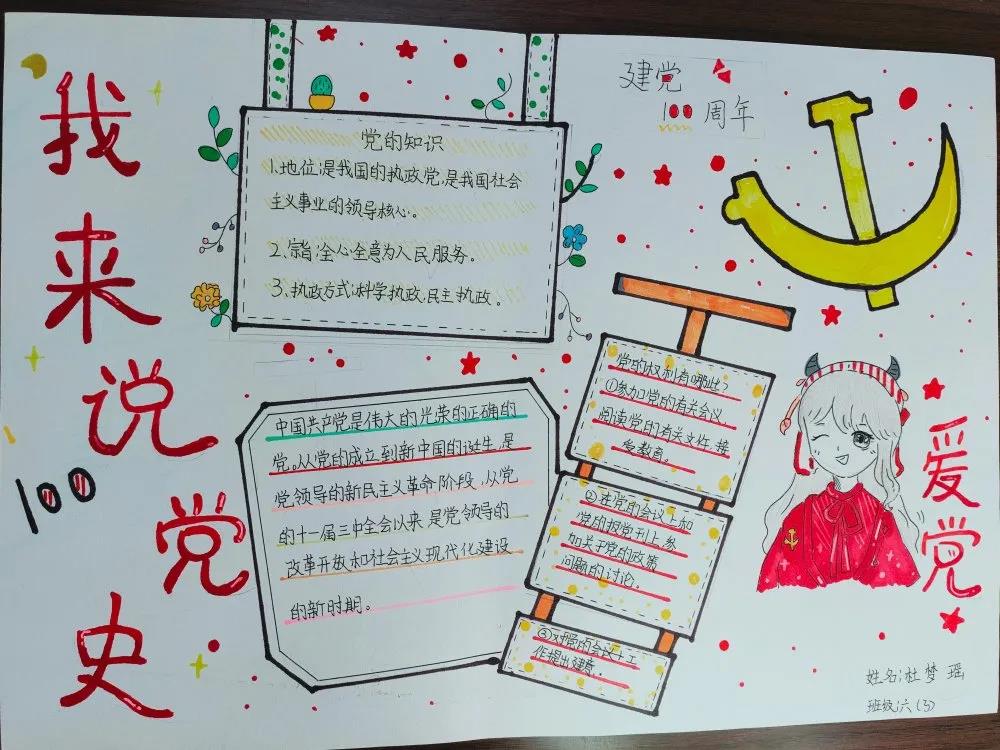 我来说党史
100
建党
100周年
党的知识
1.地位:是我国的执政党,是我国社会
主义事业的领导核心。
2、宗旨:全心全意为人民服务。
3、执政方式:科学执政,民主执政。
中国共产党是伟大的光荣的正确的
党。从党的成立到新中国的诞生,是
党领导的新民主义革命阶段,从党
的十一届三中全会以来是党领导的
改革开放和社会主义现代化建设
的新时期。
党的权利有哪些?
①参加党的有关会议,
阅读党的有关文件,接
受教育。
②在党的会议上和
党的报党刊上,参
加关于党的政策
问题的讨论。
③对党的会议工
作提出建意。
爱党
姓名:杜梦瑶
班级:六(3)